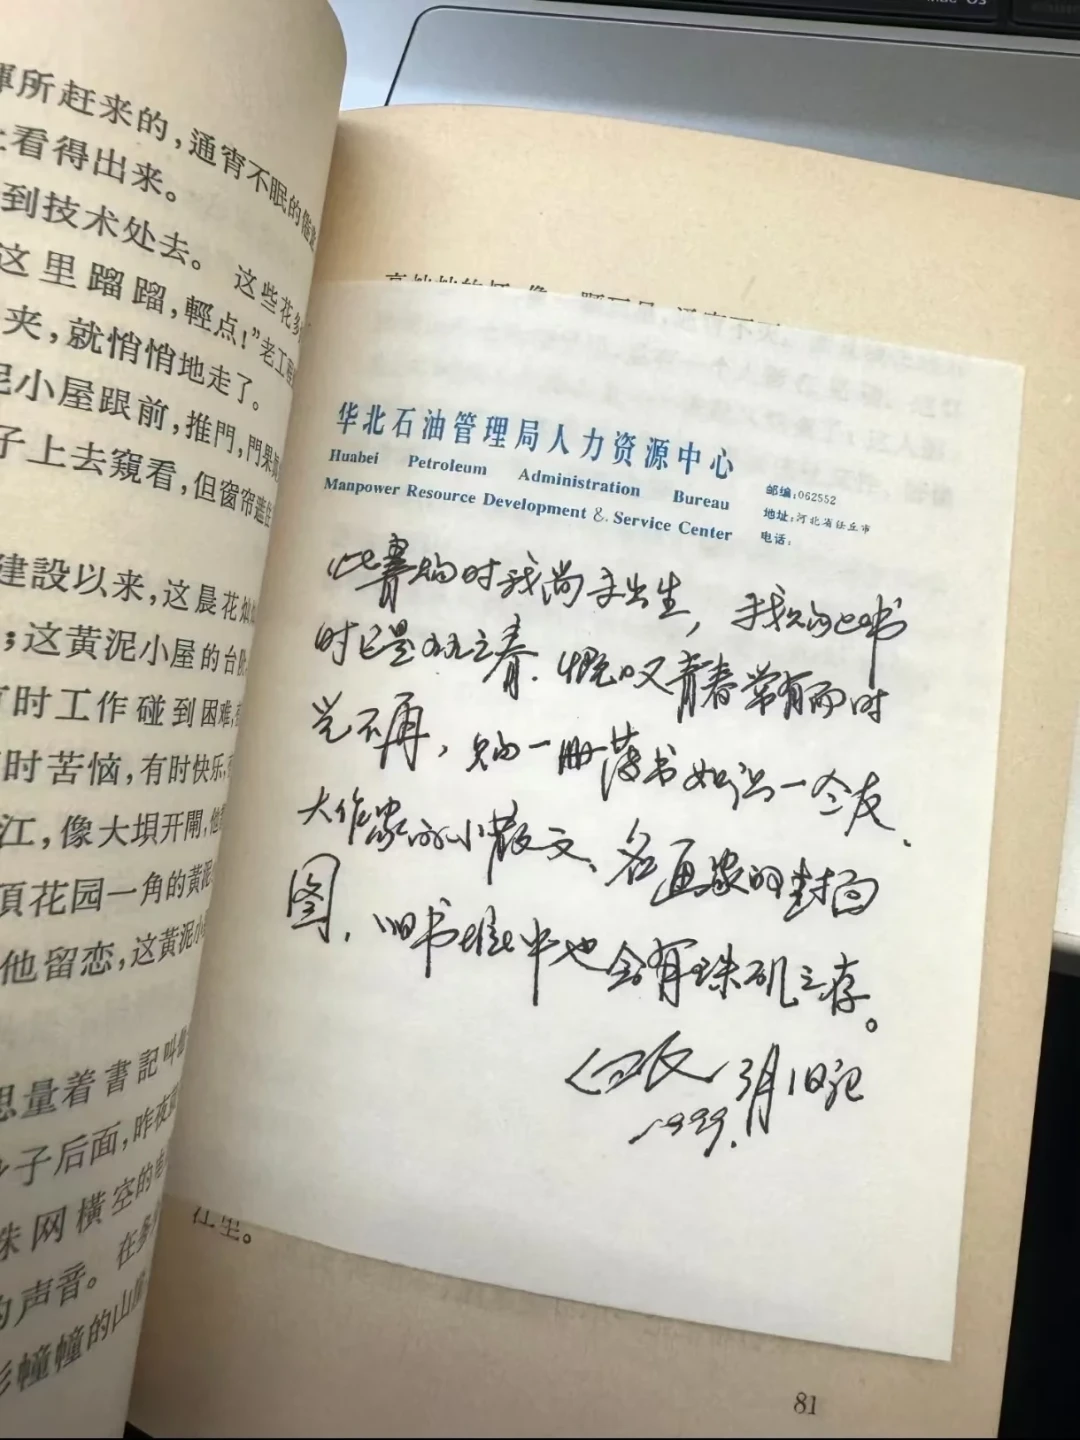 揮所赶来的，通宵不眠的
上看得出来。
到技术处去。 这些花多
这里蹓蹓，輕点！”老工程
夹，就悄悄地走了。
泥小屋跟前，推門，門果
子上去窺看，但窗帘遮住
建設以来，这晨花灿
；这黄泥小屋的台阶
有时工作碰到困难，
时苦恼，有时快乐，
江，像大垻开閘，他
頂花园一角的黃泥
他留恋，这黄泥小
思量着書記叫
子后面，昨夜
珠网橫空的
的声音。 在多
幢幢的山
华北石油管理局人力资源中心
Huabei Petroleum Administration Bureau
Manpower Resource Development & Service Center
邮编:062552
地址:河北省任丘市
电话:
此 时我尚未出生，我购此书
时已是九九之春．慨叹青春常有而时
光不再，购一册薄书如识一今友．
大作家的小散文、名画家的封面
图，旧书堆中也会有珠矶之存。
3月1日记
1999.
里。
81